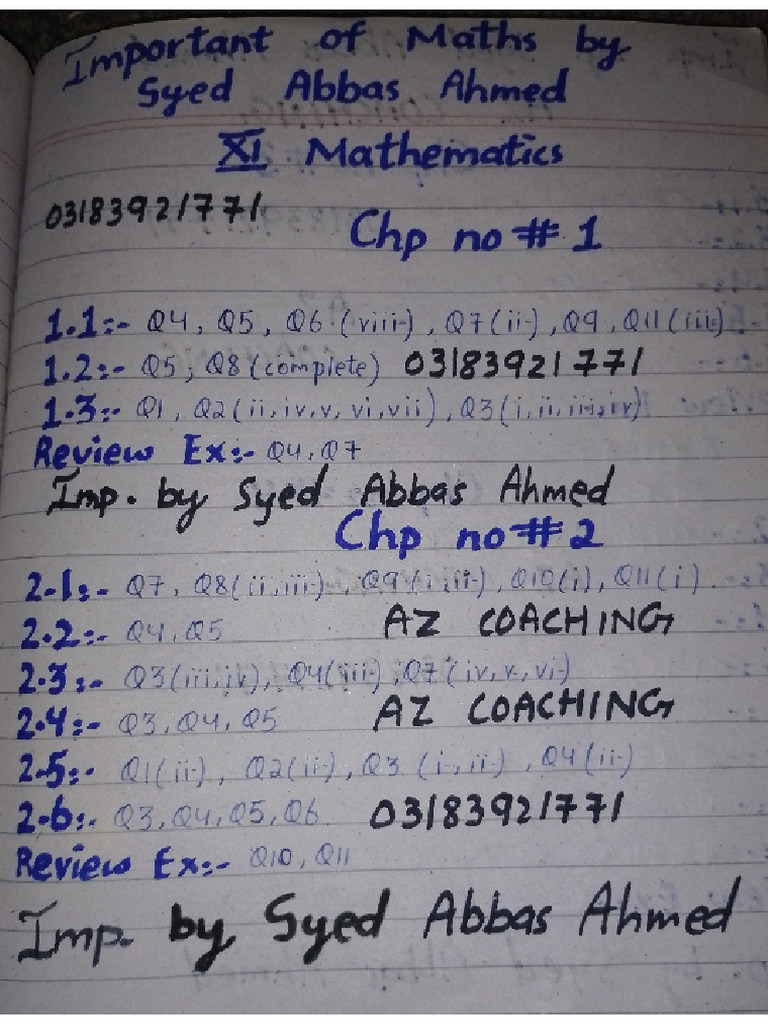 Important of Maths by
Syed Abbas Ahmed
XI Mathematics
03183921771
Chp no # 1
1.1:- Q4, Q5, Q6 (viii), Q7(ii), Q9, Q11(iii)
1.2:- Q5, Q8(complete) 03183921771
1.3:- Q1, Q2(ii,iv,v,vi,vii), Q3(i,ii,iii,iv)
Review Ex:- Q4, Q7
Imp. by Syed Abbas Ahmed
Chp no # 2
2.1:- Q7, Q8(ii,iii), Q9(i,ii), Q10(i), Q11(i)
2.2:- Q4, Q5 AZ COACHING
2.3:- Q3(iii,iv), Q4(iii), Q7(iv,v,vi)
2.4:- Q3, Q4, Q5 AZ COACHING
2.5:- Q1(ii), Q2(ii), Q3 (i,ii), Q4(ii)
2.6:- Q3, Q4, Q5, Q6 03183921771
Review Ex:- Q10, Q11
Imp. by Syed Abbas Ahmed